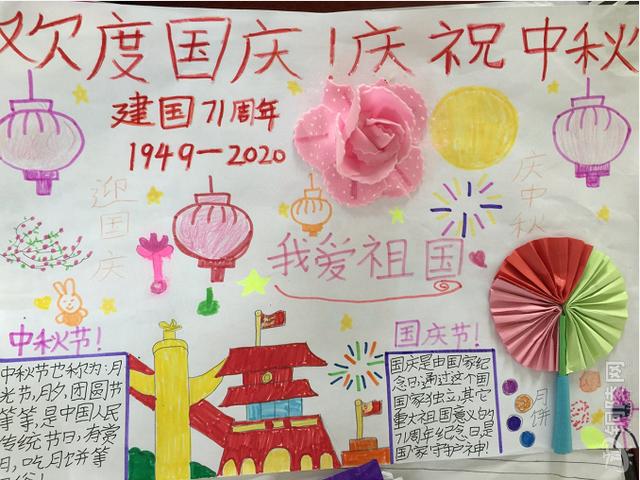 欢度国庆|庆祝中秋
建国71周年
1949—2020
迎国庆
庆中秋
我爱祖国
中秋节!
中秋节也称为:月
光节,月夕,团圆节
等等,是中国人民
传统节日,有赏
月,吃月饼等
国庆节!
国庆是由国家纪
念日,通过这个国
国家独立,其它
重大祖国意义的
71周年纪念日是
国家守护神!
月饼